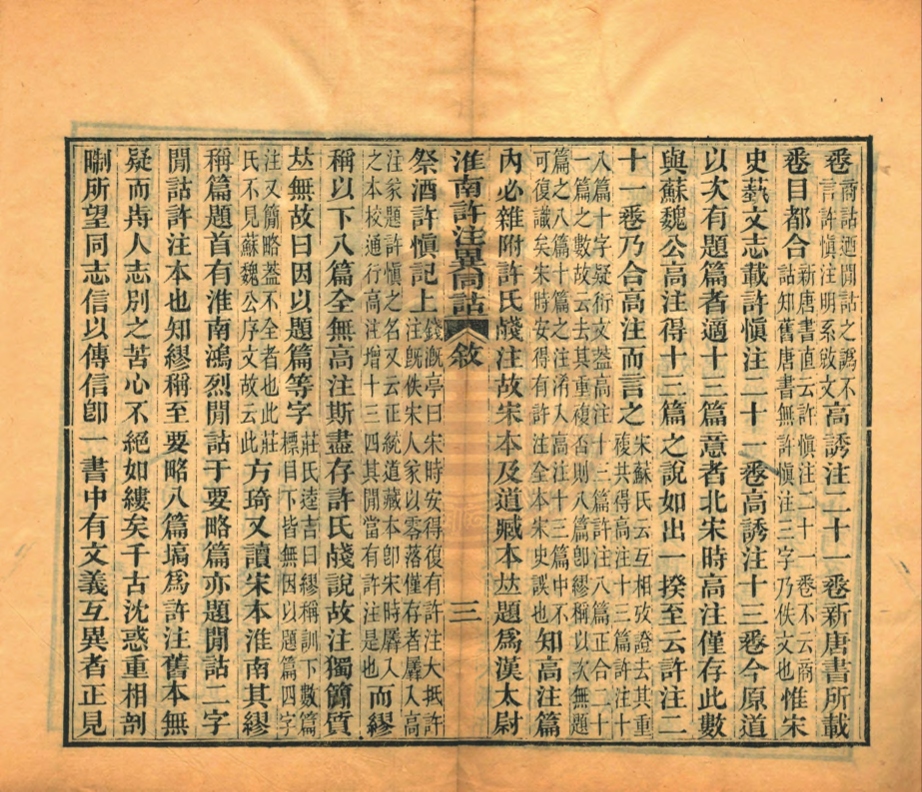 卷商詁迺閒詁之譌不言許愼注明系敓文高誘注二十一卷新唐書所載
卷目都合新唐書直云許愼注二十一卷不云商詁知舊唐書無許愼注三字乃佚文也惟宋
史藝文志載許愼注二十一卷高誘注十三卷今原道
以次有題篇者適十三篇意者北宋時高注僅存此數
與蘇魏公高注得十三篇之說如出一揆至云許注二
十一卷乃合高注而言之宋蘇氏云互相攷證去其重複共得高注十三篇許注十八篇十字疑衍文葢高注十三篇許注八篇正合二十一篇之數故云去其重複否則八篇卽繆稱以次無題
篇之八篇十篇之注淆入高注十三篇中不可復識矣宋時安得有許注全本宋史誤也知高注篇
內必雜附許氏牋注故宋本及道臧本𠀤題爲漢太尉
淮南許注異同詁 敘 三
祭酒許愼記上錢漑亭曰宋時安得復有許注大抵許注旣佚宋人家以零落僅存者羼入高
注家題許愼之名又云正統道藏本卽宋時羼入之本校通行高注增十三四其閒當有許注是也而繆
稱以下八篇全無高注斯盡存許氏牋說故注獨𥳑質
𠀤無故曰因以題篇等字莊氏逵吉曰繆稱訓下數篇標目下皆無因以題篇四字
注又簡略葢不全者也此莊氏不見蘇魏公序文故云此方琦又讀宋本淮南其繆
稱篇題首有淮南鴻烈閒詁于要略篇亦題閒詁二字
閒詁許注本也知繆稱至要略八篇塙爲許注舊本無
疑而歬人志別之苦心不絕如縷矣千古沈惑重相剖
㓸所望同志信以傳信卽一書中有文義互異者正見